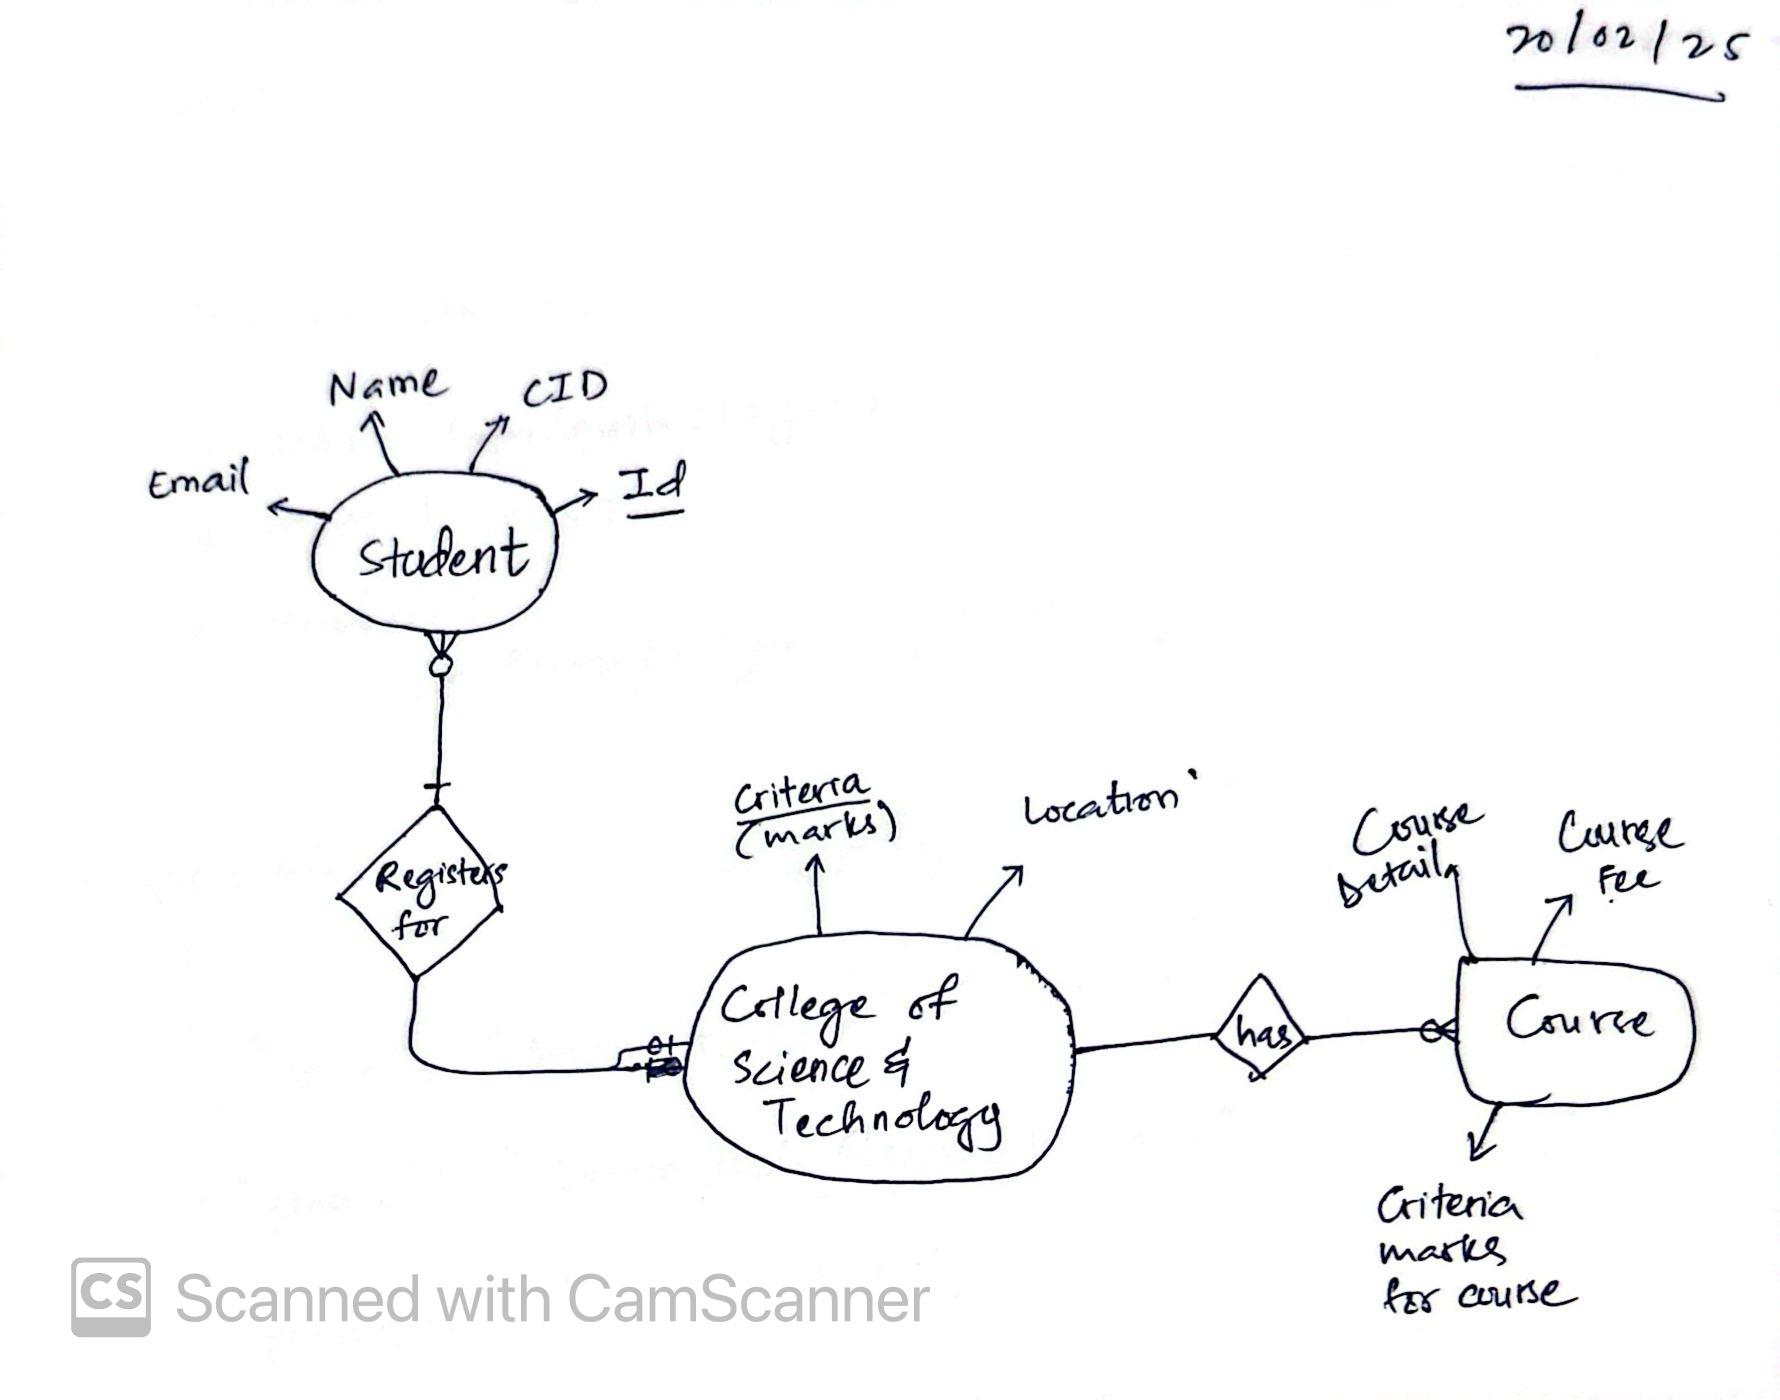 20/02/25
Name
CID
Email
Id
Student
Registers
for
Criteria
(marks)
Location
College of
Science &
Technology
has
Course
Detail
Course
Fee
Course
Criteria
marks
for course
CS Scanned with CamScanner